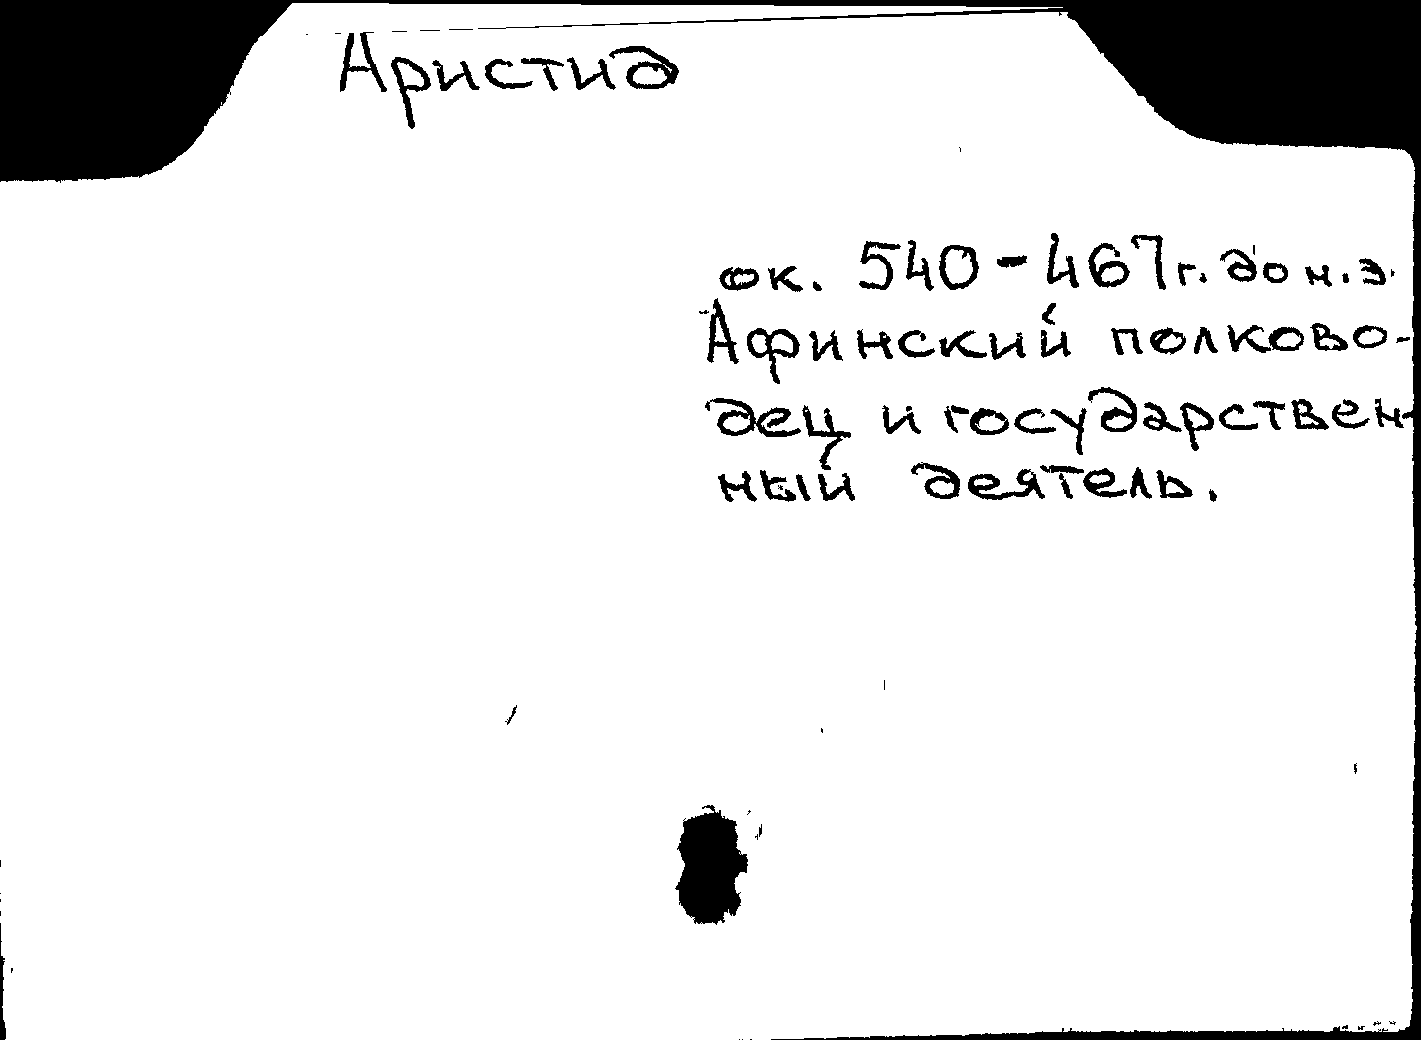 Аристид
ок. 540-467г. до н.э.
Афинский полково-
дец и государствен-
ный деятель.